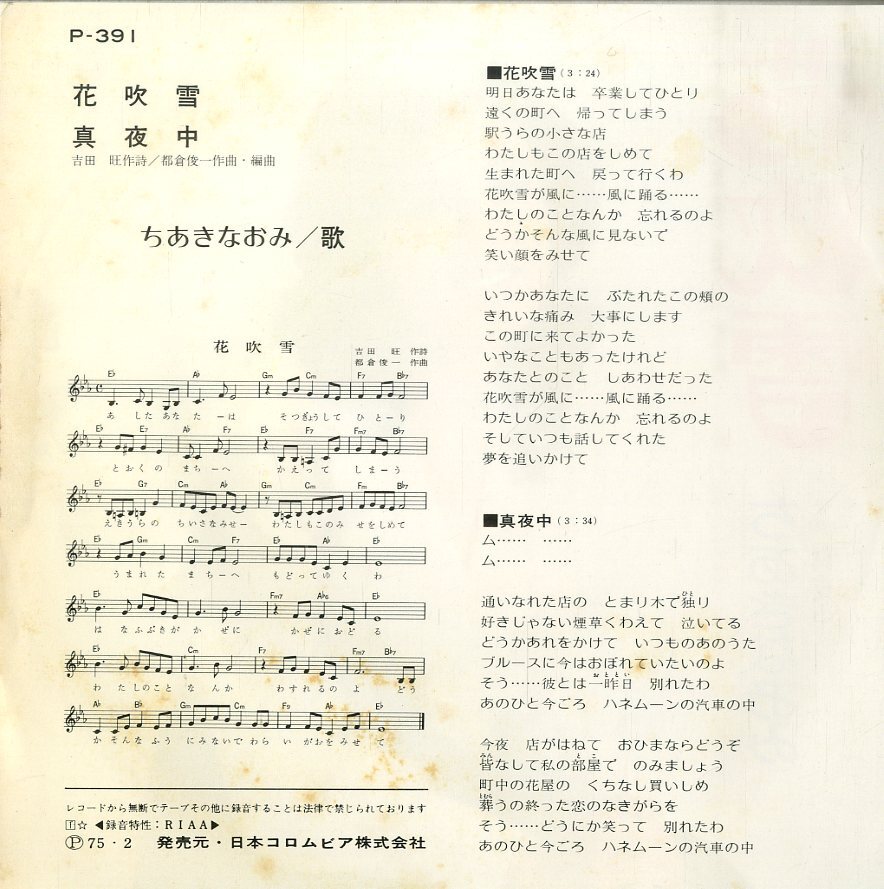 P-391
花吹雪
真夜中
吉田 旺作詩／都倉俊一作曲・編曲
ちあきなおみ／歌
花吹雪
吉田 旺 作詩
都倉俊一 作曲
E♭ A♭ Gm Cm F7 B♭7
あ し た あ な た ー は そ つ ぎょう し て ひ と ー り
E♭ E7 A♭ F7 E♭ F7 Fm7 B♭7
と お く の ま ち ー へ か え っ て し ま ー う
E♭ G7 Cm A♭ Gm Cm Fm B♭7
え き う ら の ち い さ な み せ ー わ た し も こ の み せ を し め て
E♭ Gm Cm F7 E♭ A♭ E♭
う ま れ た ま ち ー へ も ど っ て ゆ く わ
E♭ Fm7 A♭6 E♭
は な ふ ぶ き が か ぜ に か ぜ に お ど る
E♭ Gm Cm Fm7 B♭7
わ た し の こ と な ん か わ す れ る の よ ど う
A♭ B♭ Gm Cm F9 A♭ E♭
か そ ん な ふ う に み な い で わ ら い が お を み せ て
レコードから無断でテープその他に録音することは法律で禁じられております
☆ ◀録音特性：RIAA▶
Ⓟ75・2 発売元・日本コロムビア株式会社
■花吹雪（3：24）
明日あなたは 卒業してひとり
遠くの町へ 帰ってしまう
駅うらの小さな店
わたしもこの店をしめて
生まれた町へ 戻って行くわ
花吹雪が風に……風に踊る……
わたしのことなんか 忘れるのよ
どうかそんな風に見ないで
笑い顔をみせて
いつかあなたに ぶたれたこの頬の
きれいな痛み 大事にします
この町に来てよかった
いやなこともあったけれど
あなたとのこと しあわせだった
花吹雪が風に……風に踊る……
わたしのことなんか 忘れるのよ
そしていつも話してくれた
夢を追いかけて
■真夜中（3：34）
ム…… ……
ム…… ……
通いなれた店の とまり木で独り
好きじゃない煙草くわえて 泣いてる
どうかあれをかけて いつものあのうた
ブルースに今はおぼれていたいのよ
そう……彼とは一昨日 別れたわ
あのひと今ごろ ハネムーンの汽車の中
今夜 店がはねて おひまならどうぞ
皆なして私の部屋で のみましょう
町中の花屋の くちなし買いしめ
葬うの終った恋のなきがらを
そう……どうにか笑って 別れたわ
あのひと今ごろ ハネムーンの汽車の中